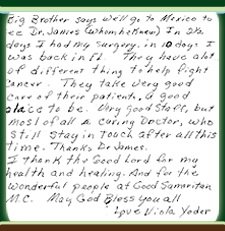 Big Brother says we'll go to Mexico to
see Dr. James (whom he knew) In 2½
days I had my surgery, in 10 days I
was back in FL. They have alot
of different thing to help fight
Cancer. They take very good
care of their patient, a good
place to be. Very good Staff, but
most of all a caring Doctor, who
still stay in touch after all this
time. Thanks Dr. James.
I thank the Good Lord for my
health and healing. And for the
wonderful people at Good Samaritan
M.C. May God Bless you all
Love Viola Yoder